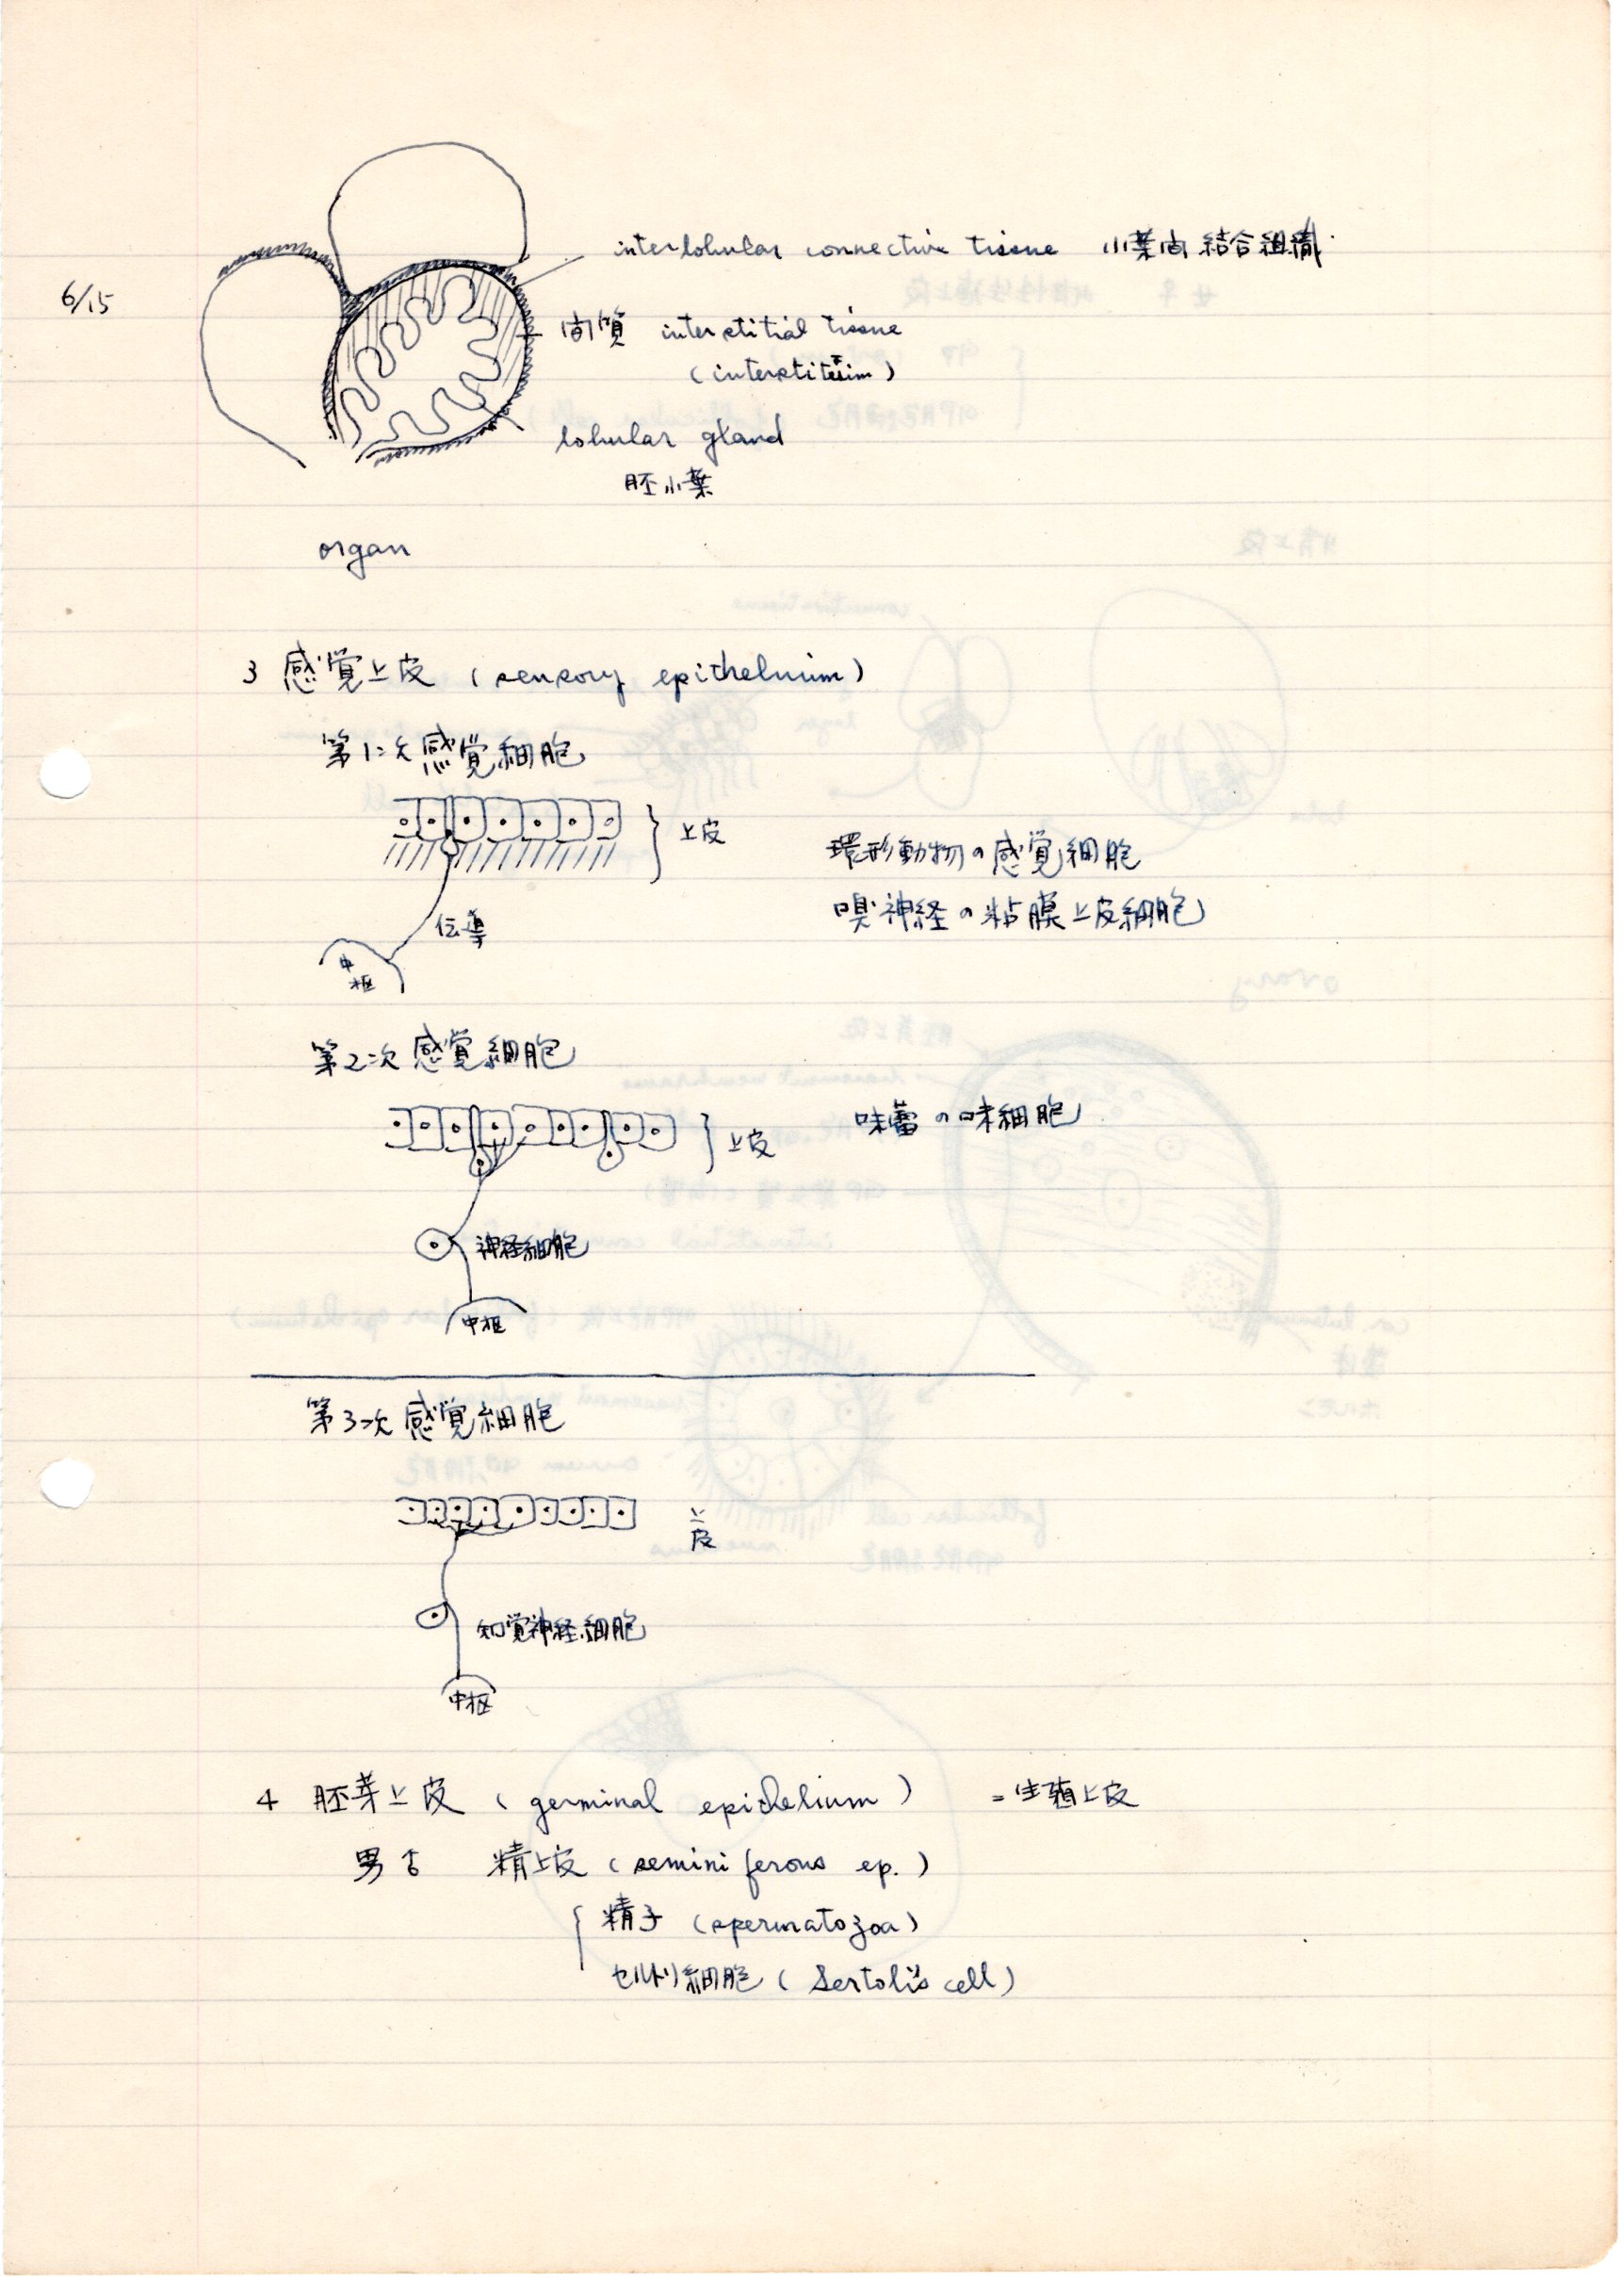 6/15
interlobular connective tissue 小葉间 結合組織
间質 interstitial tissue
(interstitium)
lobular gland
胚小葉
organ
3 感覚上皮 (sensory epithelium)
第1次感覚細胞
上皮
環形動物の感覚細胞
嗅神経の粘膜上皮細胞
伝導
中枢
第2次感覚細胞
上皮
味蕾の味細胞
神経細胞
中枢
第3次感覚細胞
上皮
知覚神経細胞
中枢
4 胚芽上皮 (germinal epithelium) = 生殖上皮
男 ♂ 精上皮 (seminiferous ep.)
精子 (spermatozoa)
セルトリ細胞 (Sertoli's cell)